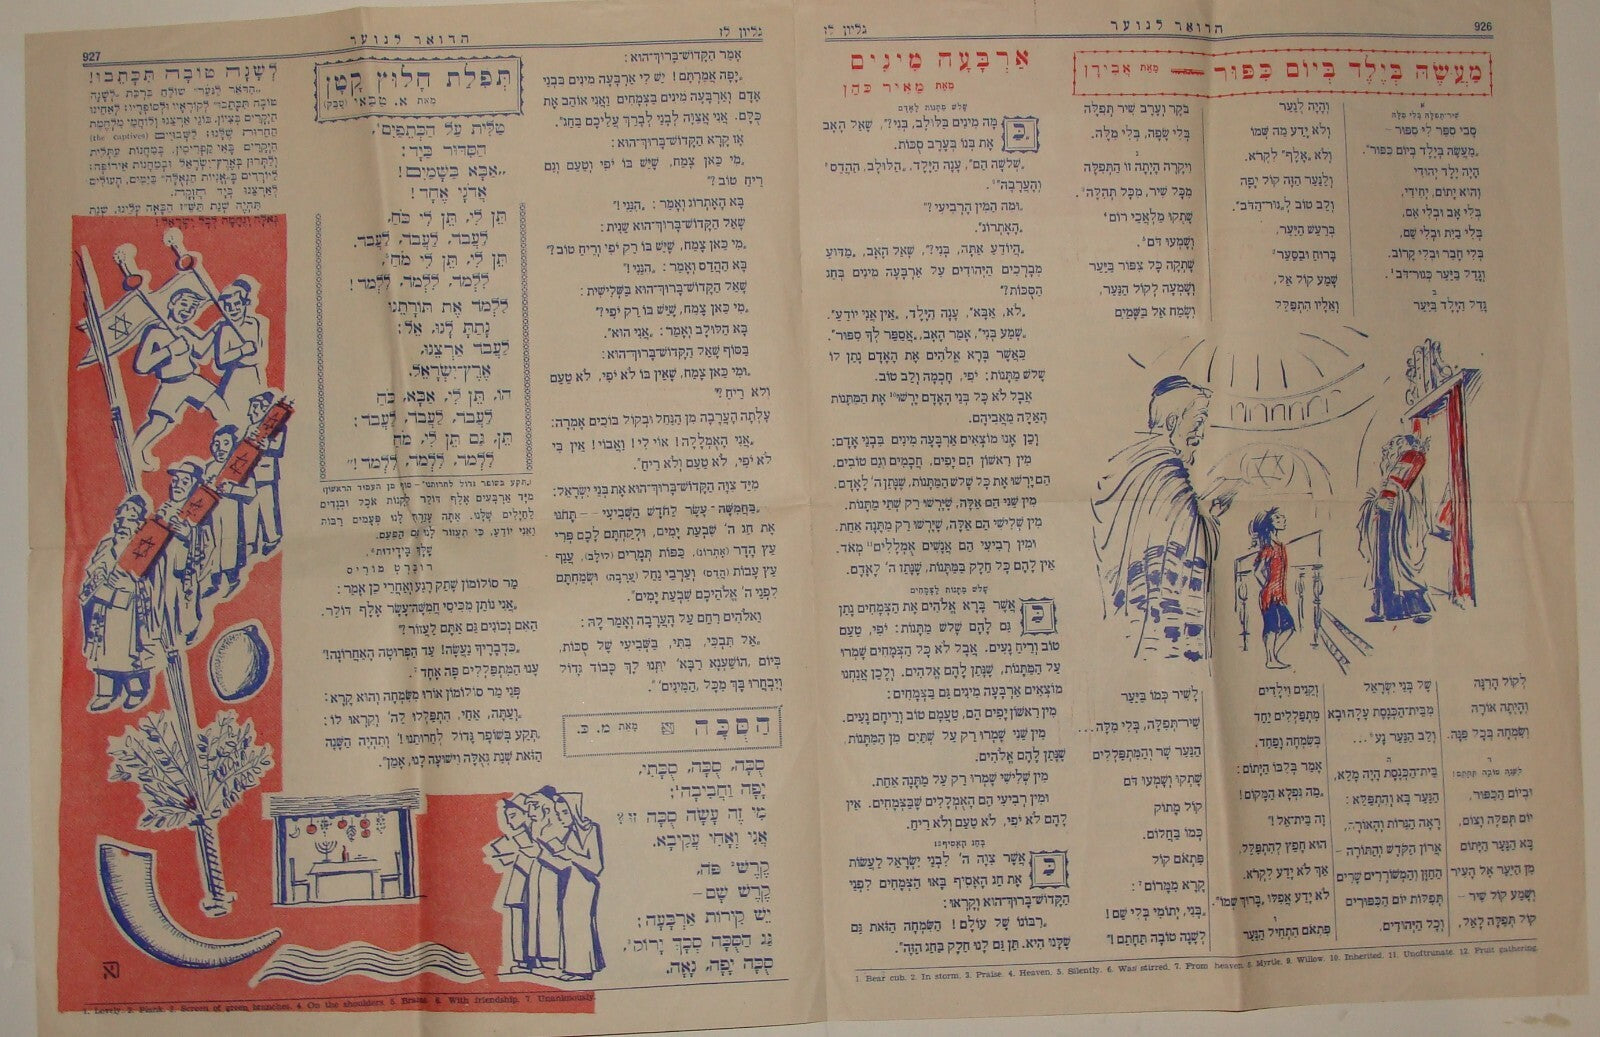 926
הדואר לנוער
גליון לז
מַעֲשֶׂה בְּיֶלֶד בְּיוֹם כִּפּוּר
מאת אבידן
א
שיר־תפלה בלי מלה
סַבִּי סִפֵּר לִי סִפּוּר –
„מַעֲשֶׂה בְּיֶלֶד בְּיוֹם כִּפּוּר".
הָיָה יֶלֶד יְהוּדִי
וְהוּא יָתוֹם, יְחִידִי,
בְּלִי אָב וּבְלִי אֵם,
בְּלִי בַּיִת וּבְלִי שֵׁם,
בְּלִי חָבֵר וּבְלִי קָרוֹב.
וְגָדֵל בַּיַּעַר כְּגוּר־דֹּב¹.
ב
גָּדַל הַיֶּלֶד בַּיַּעַר
וְהָיָה לְנַעַר
וְלֹא יָדַע מַה שְּׁמוֹ
וְלֹא „אָלֶף" לִקְרֹא.
וְלַנַּעַר הַזֶּה קוֹל יָפֶה
וְלֵב טוֹב לְ„גוּר־הַדֹּב".
בְּרַעַשׁ הַיַּעַר,
בָּרוּחַ וּבַסַּעַר²
שָׁמַע קוֹל אֵל,
וְאֵלָיו הִתְפַּלֵּל
בֹּקֶר וָעֶרֶב שִׁיר תְּפִלָּה
בְּלִי שָׂפָה, בְּלִי מִלָּה.
ג
וִיקָרָה הָיְתָה זוֹ הַתְּפִלָּה
מִכָּל שִׁיר, מִכָּל תְּהִלָּה³.
שָׁתְקוּ מַלְאֲכֵי רוֹם⁴
וְשָׁמְעוּ דֹּם⁵.
שָׁתְקָה כָּל צִפּוֹר בַּיַּעַר
וְשָׁמְעָה לְקוֹל הַנַּעַר,
וְשָׂמַח אֵל בַּשָּׁמַיִם
לְקוֹל הָרִנָּה
וְהָיְתָה אוֹרָה
וְשִׂמְחָה בְּכָל פִּנָּה.
ד
לשנה טובה תחתם!
וּבְיוֹם הַכִּפּוּר,
יוֹם תְּפִלָּה וָצוֹם,
בָּא הַנַּעַר הַיָּתוֹם
מִן הַיַּעַר אֶל הָעִיר
וְשָׁמַע קוֹל שִׁיר –
קוֹל תְּפִלָּה לָאֵל,
שֶׁל בְּנֵי יִשְׂרָאֵל
מִבֵּית־הַכְּנֶסֶת עָלָה וּבָא
וְלֵב הַנַּעַר נָע⁶...
ה
בֵּית־הַכְּנֶסֶת הָיָה מָלֵא,
הַנַּעַר בָּא וְהִתְפַּלֵּא:
רָאָה הַנֵּרוֹת וְהָאוֹרָה,
אֲרוֹן הַקֹּדֶשׁ וְהַתּוֹרָה –
הַחַזָּן וְהַמְשׁוֹרְרִים שָׁרִים
תְּפִלּוֹת יוֹם הַכִּפּוּרִים
וְכָל הַיְּהוּדִים,
זְקֵנִים וִילָדִים
מִתְפַּלְּלִים יַחַד
בְּשִׂמְחָה וָפַחַד.
אָמַר בְּלִבּוֹ הַיָּתוֹם:
„מַה נִּפְלָא הַמָּקוֹם!
זֶה בֵּית־אֵל!"
הוּא חָפֵץ לְהִתְפַּלֵּל,
אַךְ לֹא יָדַע לִקְרֹא.
לֹא יָדַע אֲפִלּוּ „בָּרוּךְ שְׁמוֹ".
ו
פִּתְאֹם הִתְחִיל הַנַּעַר
לָשִׁיר כְּמוֹ בַּיַּעַר
שִׁיר־תְּפִלָּה, בְּלִי מִלָּה...
הַנַּעַר שָׁר וְהַמִּתְפַּלְּלִים
שָׁתְקוּ וְשָׁמְעוּ דֹּם
קוֹל מָתוֹק
כְּמוֹ בַּחֲלוֹם.
פִּתְאֹם קוֹל
קָרָא מִמָּרוֹם⁷:
„בְּנִי, יְתוֹמִי בְּלִי שֵׁם!
לְשָׁנָה טוֹבָה תֵּחָתֵם!"
אַרְבָּעָה מִינִים
מאת מאיר כהן
שלש מתנות לאדם
כַּמָּה מִינִים בַּלּוּלָב, בְּנִי?", שָׁאַל הָאָב
אֶת בְּנוֹ בְּעֶרֶב סֻכּוֹת.
„שְׁלֹשָׁה הֵם", עָנָה הַיֶּלֶד, „הַלּוּלָב, הַהֲדַס⁸
וְהָעֲרָבָה⁹".
„וּמַה הַמִּין הָרְבִיעִי?"
„הָאֶתְרוֹג".
„הֲיוֹדֵעַ אַתָּה, בְּנִי?", שָׁאַל הָאָב, „מַדּוּעַ
מְבָרְכִים הַיְּהוּדִים עַל אַרְבָּעָה מִינִים בְּחַג
הַסֻּכּוֹת?"
„לֹא, אַבָּא", עָנָה הַיֶּלֶד, „אֵין אֲנִי יוֹדֵעַ".
„שְׁמַע בְּנִי", אָמַר הָאָב, „אֲסַפֵּר לְךָ סִפּוּר".
כַּאֲשֶׁר בָּרָא אֱלֹהִים אֶת הָאָדָם נָתַן לוֹ
שָׁלֹשׁ מַתָּנוֹת: יֹפִי, חָכְמָה וְלֵב טוֹב.
אֲבָל לֹא כָּל בְּנֵי הָאָדָם יָרְשׁוּ¹⁰ אֶת הַמַּתָּנוֹת
הָאֵלֶּה מֵאֲבִיהֶם.
וְכֵן אָנוּ מוֹצְאִים אַרְבָּעָה מִינִים בִּבְנֵי אָדָם:
מִין רִאשׁוֹן הֵם יָפִים, חֲכָמִים וְגַם טוֹבִים.
הֵם יָרְשׁוּ אֶת כָּל שְׁלֹשׁ הַמַּתָּנוֹת, שֶׁנָּתַן ה' לָאָדָם.
מִין שֵׁנִי הֵם אֵלֶּה, שֶׁיָּרְשׁוּ רַק שְׁתֵּי מַתָּנוֹת.
מִין שְׁלִישִׁי הֵם אֵלֶּה, שֶׁיָּרְשׁוּ רַק מַתָּנָה אַחַת.
וּמִין רְבִיעִי הֵם אֲנָשִׁים אֻמְלָלִים¹¹ מְאֹד.
אֵין לָהֶם כָּל חֵלֶק בַּמַּתָּנוֹת, שֶׁנָּתַן ה' לָאָדָם.
שלש מתנות לצמחים
כַּאֲשֶׁר בָּרָא אֱלֹהִים אֶת הַצְּמָחִים נָתַן
גַּם לָהֶם שָׁלֹשׁ מַתָּנוֹת: יֹפִי, טַעַם
טוֹב וְרֵיחַ נָעִים. אֲבָל לֹא כָּל הַצְּמָחִים שָׁמְרוּ
עַל הַמַּתָּנוֹת, שֶׁנָּתַן לָהֶם אֱלֹהִים. וְלָכֵן אֲנַחְנוּ
מוֹצְאִים אַרְבָּעָה מִינִים גַּם בַּצְּמָחִים:
מִין רִאשׁוֹן יָפִים הֵם, טַעֲמָם טוֹב וְרֵיחָם נָעִים.
מִין שֵׁנִי שָׁמְרוּ רַק עַל שְׁתַּיִם מִן הַמַּתָּנוֹת,
שֶׁנָּתַן לָהֶם אֱלֹהִים.
מִין שְׁלִישִׁי שָׁמְרוּ רַק עַל מַתָּנָה אַחַת.
וּמִין רְבִיעִי הֵם הָאֻמְלָלִים שֶׁבַּצְּמָחִים. אֵין
לָהֶם לֹא יֹפִי, לֹא טַעַם וְלֹא רֵיחַ.
בחג האסיף¹²
כַּאֲשֶׁר צִוָּה ה' לִבְנֵי יִשְׂרָאֵל לַעֲשׂוֹת
אֶת חַג הָאָסִיף בָּאוּ הַצְּמָחִים לִפְנֵי
הַקָּדוֹשׁ־בָּרוּךְ־הוּא וְקָרְאוּ:
„רִבּוֹנוֹ שֶׁל עוֹלָם! הַשִּׂמְחָה הַזֹּאת גַּם
שֶׁלָּנוּ הִיא. תֵּן גַּם לָנוּ חֵלֶק בַּחַג הַזֶּה".
1. Bear cub. 2. In storm. 3. Praise. 4. Heaven. 5. Silently. 6. Was stirred. 7. From heaven. 8. Myrtle. 9. Willow. 10. Inherited. 11. Unofrtunate. 12. Fruit gathering.
גליון לז
הדואר לנוער
927
אָמַר הַקָּדוֹשׁ־בָּרוּךְ־הוּא:
„יָפֶה אֲמַרְתֶּם! יֵשׁ לִי אַרְבָּעָה מִינִים בִּבְנֵי
אָדָם וְאַרְבָּעָה מִינִים בַּצְּמָחִים וַאֲנִי אוֹהֵב אֶת
כֻּלָּם. אֲנִי אֲצַוֶּה לְבָנַי לְבָרֵךְ עֲלֵיכֶם בֶּחָג".
אָז קָרָא הַקָּדוֹשׁ־בָּרוּךְ־הוּא:
„מִי כָּאן צֶמַח, שֶׁיֵּשׁ בּוֹ יֹפִי וְטַעַם וְגַם
רֵיחַ טוֹב?"
בָּא הָאֶתְרוֹג וְאָמַר: „הִנֵּנִי!"
שָׁאַל הַקָּדוֹשׁ־בָּרוּךְ־הוּא שֵׁנִית:
„מִי כָּאן צֶמַח, שֶׁיֵּשׁ בּוֹ רַק יֹפִי וְרֵיחַ טוֹב?"
בָּא הַהֲדַס וְאָמַר: „הִנֵּנִי!"
שָׁאַל הַקָּדוֹשׁ־בָּרוּךְ־הוּא בַּשְּׁלִישִׁית:
„מִי כָּאן צֶמַח, שֶׁיֵּשׁ בּוֹ רַק יֹפִי?"
בָּא הַלּוּלָב וְאָמַר: „אֲנִי הוּא".
בַּסּוֹף שָׁאַל הַקָּדוֹשׁ־בָּרוּךְ־הוּא:
„וּמִי כָּאן צֶמַח, שֶׁאֵין בּוֹ לֹא יֹפִי, לֹא טַעַם
וְלֹא רֵיחַ?"
עָלְתָה הָעֲרָבָה מִן הַנַּחַל וּבְקוֹל בּוֹכִים אָמְרָה:
„אֲנִי הָאֻמְלָלָה! אוֹי לִי! וַאֲבוֹי! אֵין בִּי
לֹא יֹפִי, לֹא טַעַם וְלֹא רֵיחַ".
מִיָּד צִוָּה הַקָּדוֹשׁ־בָּרוּךְ־הוּא אֶת בְּנֵי יִשְׂרָאֵל:
„בַּחֲמִשָּׁה־עָשָׂר לַחֹדֶשׁ הַשְּׁבִיעִי –– תָּחֹגּוּ
אֶת חַג ה' שִׁבְעַת יָמִים, וּלְקַחְתֶּם לָכֶם פְּרִי
עֵץ הָדָר (אֶתְרוֹג), כַּפּוֹת תְּמָרִים (לוּלָב), עֲנַף
עֵץ עָבוֹת (הֲדַס) וְעַרְבֵי נַחַל (עֲרָבָה) וּשְׂמַחְתֶּם
לִפְנֵי ה' אֱלֹהֵיכֶם שִׁבְעַת יָמִים".
וֵאלֹהִים רִחַם עַל הָעֲרָבָה וְאָמַר לָהּ:
„אַל תִּבְכִּי, בִּתִּי, בַּשְּׁבִיעִי שֶׁל סֻכּוֹת,
בְּיוֹם ‚הוֹשַׁעְנָא רַבָּא', יִתְּנוּ לָךְ כָּבוֹד גָּדוֹל
וְיִבְחֲרוּ בָּךְ מִכָּל ‚הַמִּינִים'".
הַסֻּכָּה
מאת מ. כ.
סֻכָּה, סֻכָּה, סֻכָּתִי,
יָפָה וַחֲבִיבָה¹;
מִי זֶה עָשָׂה סֻכָּה זוֹ?
אֲנִי וְאָחִי עֲקִיבָא.
קֶרֶשׁ² פֹּה,
קֶרֶשׁ שָׁם –
יֵשׁ קִירוֹת אַרְבָּעָה;
גַּג הַסֻּכָּה סְכָךְ יָרוֹק³,
סֻכָּה יָפָה, נָאָה.
תְּפִלַּת חָלוּץ קָטָן
מאת א. טבאי (טבק)
טַלִּית עַל הַכְּתֵפַיִם⁴,
הַסִּדּוּר בַּיָּד:
„אַבָּא בַּשָּׁמַיִם!
אֲדֹנָי אֶחָד!
תֵּן לִי, תֵּן לִי כֹּחַ,
לַעֲבֹד, לַעֲבֹד, לַעֲבֹד.
תֵּן לִי, תֵּן לִי מֹחַ⁵,
לִלְמֹד, לִלְמֹד, לִלְמֹד!
לִלְמֹד אֶת תּוֹרָתֵנוּ
נָתַתָּ לָנוּ, אֵל:
לַעֲבֹד אַרְצֵנוּ,
אֶרֶץ־יִשְׂרָאֵל.
הוֹ, תֵּן לִי, אַבָּא, כֹּחַ
לַעֲבֹד, לַעֲבֹד, לַעֲבֹד:
תֵּן, גַּם תֵּן לִי, מֹחַ
לִלְמֹד, לִלְמֹד, לִלְמֹד!"
„תקע בשופר גדול לחרותנו" – סוף מן העמוד הראשון)
מִיָּד אַרְבָּעִים אֶלֶף דוֹלָר לִקְנוֹת אֹכֶל וּבְגָדִים
לַחַיָּלִים שֶׁלָּנוּ. אַתָּה עָזַרְתָּ לָנוּ פְּעָמִים רַבּוֹת
וַאֲנִי יוֹדֵעַ, כִּי תַּעֲזוֹר לָנוּ גַּם הַפַּעַם.
שֶׁלְּךָ בִּידִידוּת⁶.
רוברט מוריס
מַר סוֹלוֹמוֹן שָׁתַק רֶגַע וְאַחֲרֵי כֵן אָמַר:
„אֲנִי נוֹתֵן מִכִּיסִי חֲמִשָּׁה־עָשָׂר אֶלֶף דוֹלָר.
הַאִם נְכוֹנִים גַּם אַתֶּם לַעֲזוֹר?"
„כִּדְבָרֶיךָ נַעֲשֶׂה! עַד הַפְּרוּטָה הָאַחֲרוֹנָה!"
עָנוּ הַמִּתְפַּלְּלִים פֶּה אֶחָד⁷.
פְּנֵי מַר סוֹלוֹמוֹן אוֹרוּ מִשִּׂמְחָה וְהוּא קָרָא:
„וְעַתָּה, אַחַי, הִתְפַּלְּלוּ לַה' וְקִרְאוּ לוֹ:
‚תְּקַע בְּשׁוֹפָר גָּדוֹל לְחֵרוּתֵנוּ!' וּתְהִיֶה הַשָּׁנָה
הַזֹּאת שְׁנַת גְּאֻלָּה וִישׁוּעָה לָנוּ, אָמֵן".
לְשָׁנָה טוֹבָה תִּכָּתֵבוּ!
„הדואר לנוער" שולח ברכת „לשנה
טובה תכתבו" לקוראיו ולסופריו: לאחינו
היקרים בציון, בוני ארצנו ולוחמי מלחמת
החרות שלנו: לשבויים (the captives)
היקרים באי קפריסין, במחנות עתלית
ולתרון בארץ־ישראל ובמחנות אירופה:
ליורדים ב„אניות הגאולה" בימים, העולים
לארצנו ביד חזקה.
תהיה שנת תש"ז הבאה עלינו, שנת
גאולה ונחמה לכל ישראל!
1. Lovely. 2. Plank. 3. Screen of green branches. 4. On the shoulders. 5. Brains. 6. With friendship. 7. Unanimously.